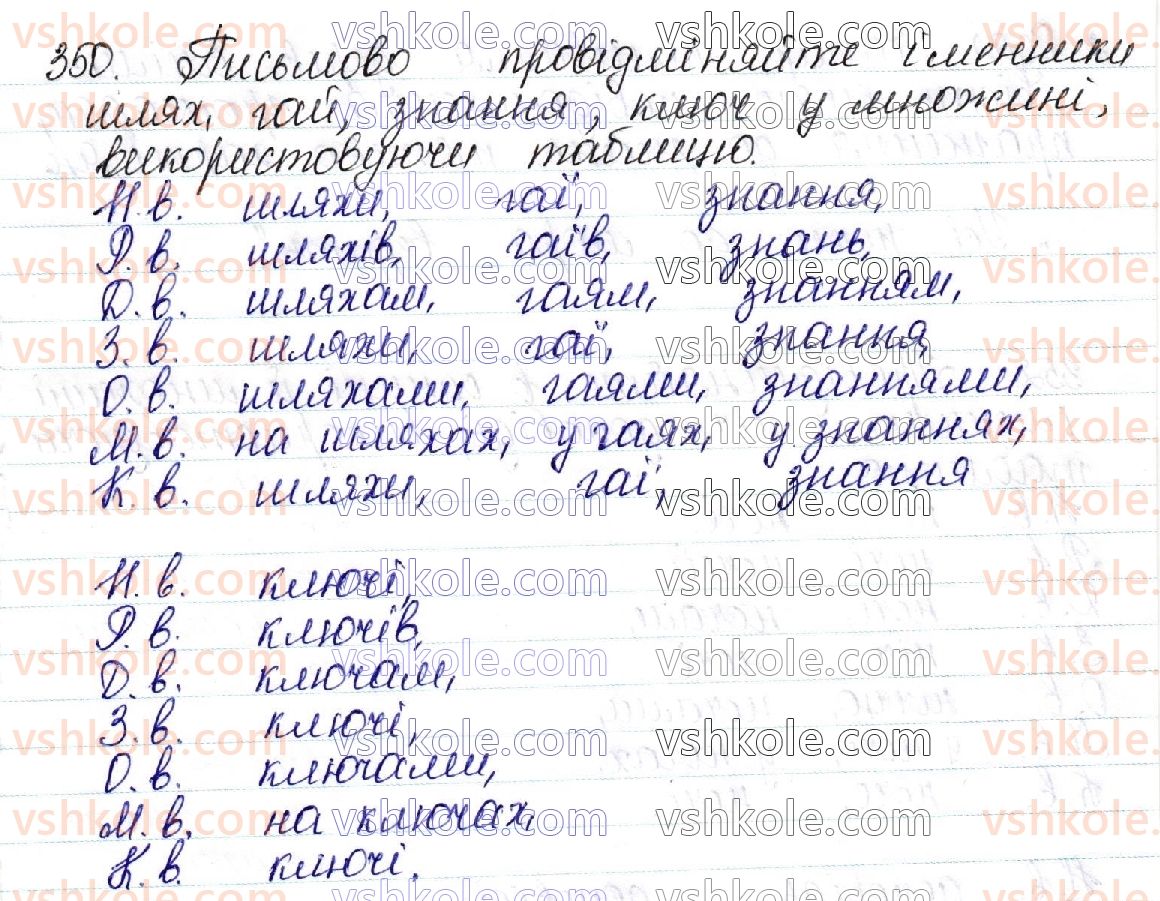 350. Письмово провідміняйте іменники
шлях, гай, знання, ключ у множині,
використовуючи таблицю.
Н.в. шляхи, гаї, знання,
Р.в. шляхів, гаїв, знань,
Д.в. шляхам, гаям, знанням,
З.в. шляхи, гаї, знання,
О.в. шляхами, гаями, знаннями,
М.в. на шляхах, у гаях, у знаннях,
К.в. шляхи, гаї, знання
Н.в. ключі,
Р.в. ключів,
Д.в. ключам,
З.в. ключі,
О.в. ключами,
М.в. на ключах,
К.в. ключі.
vshkole.com